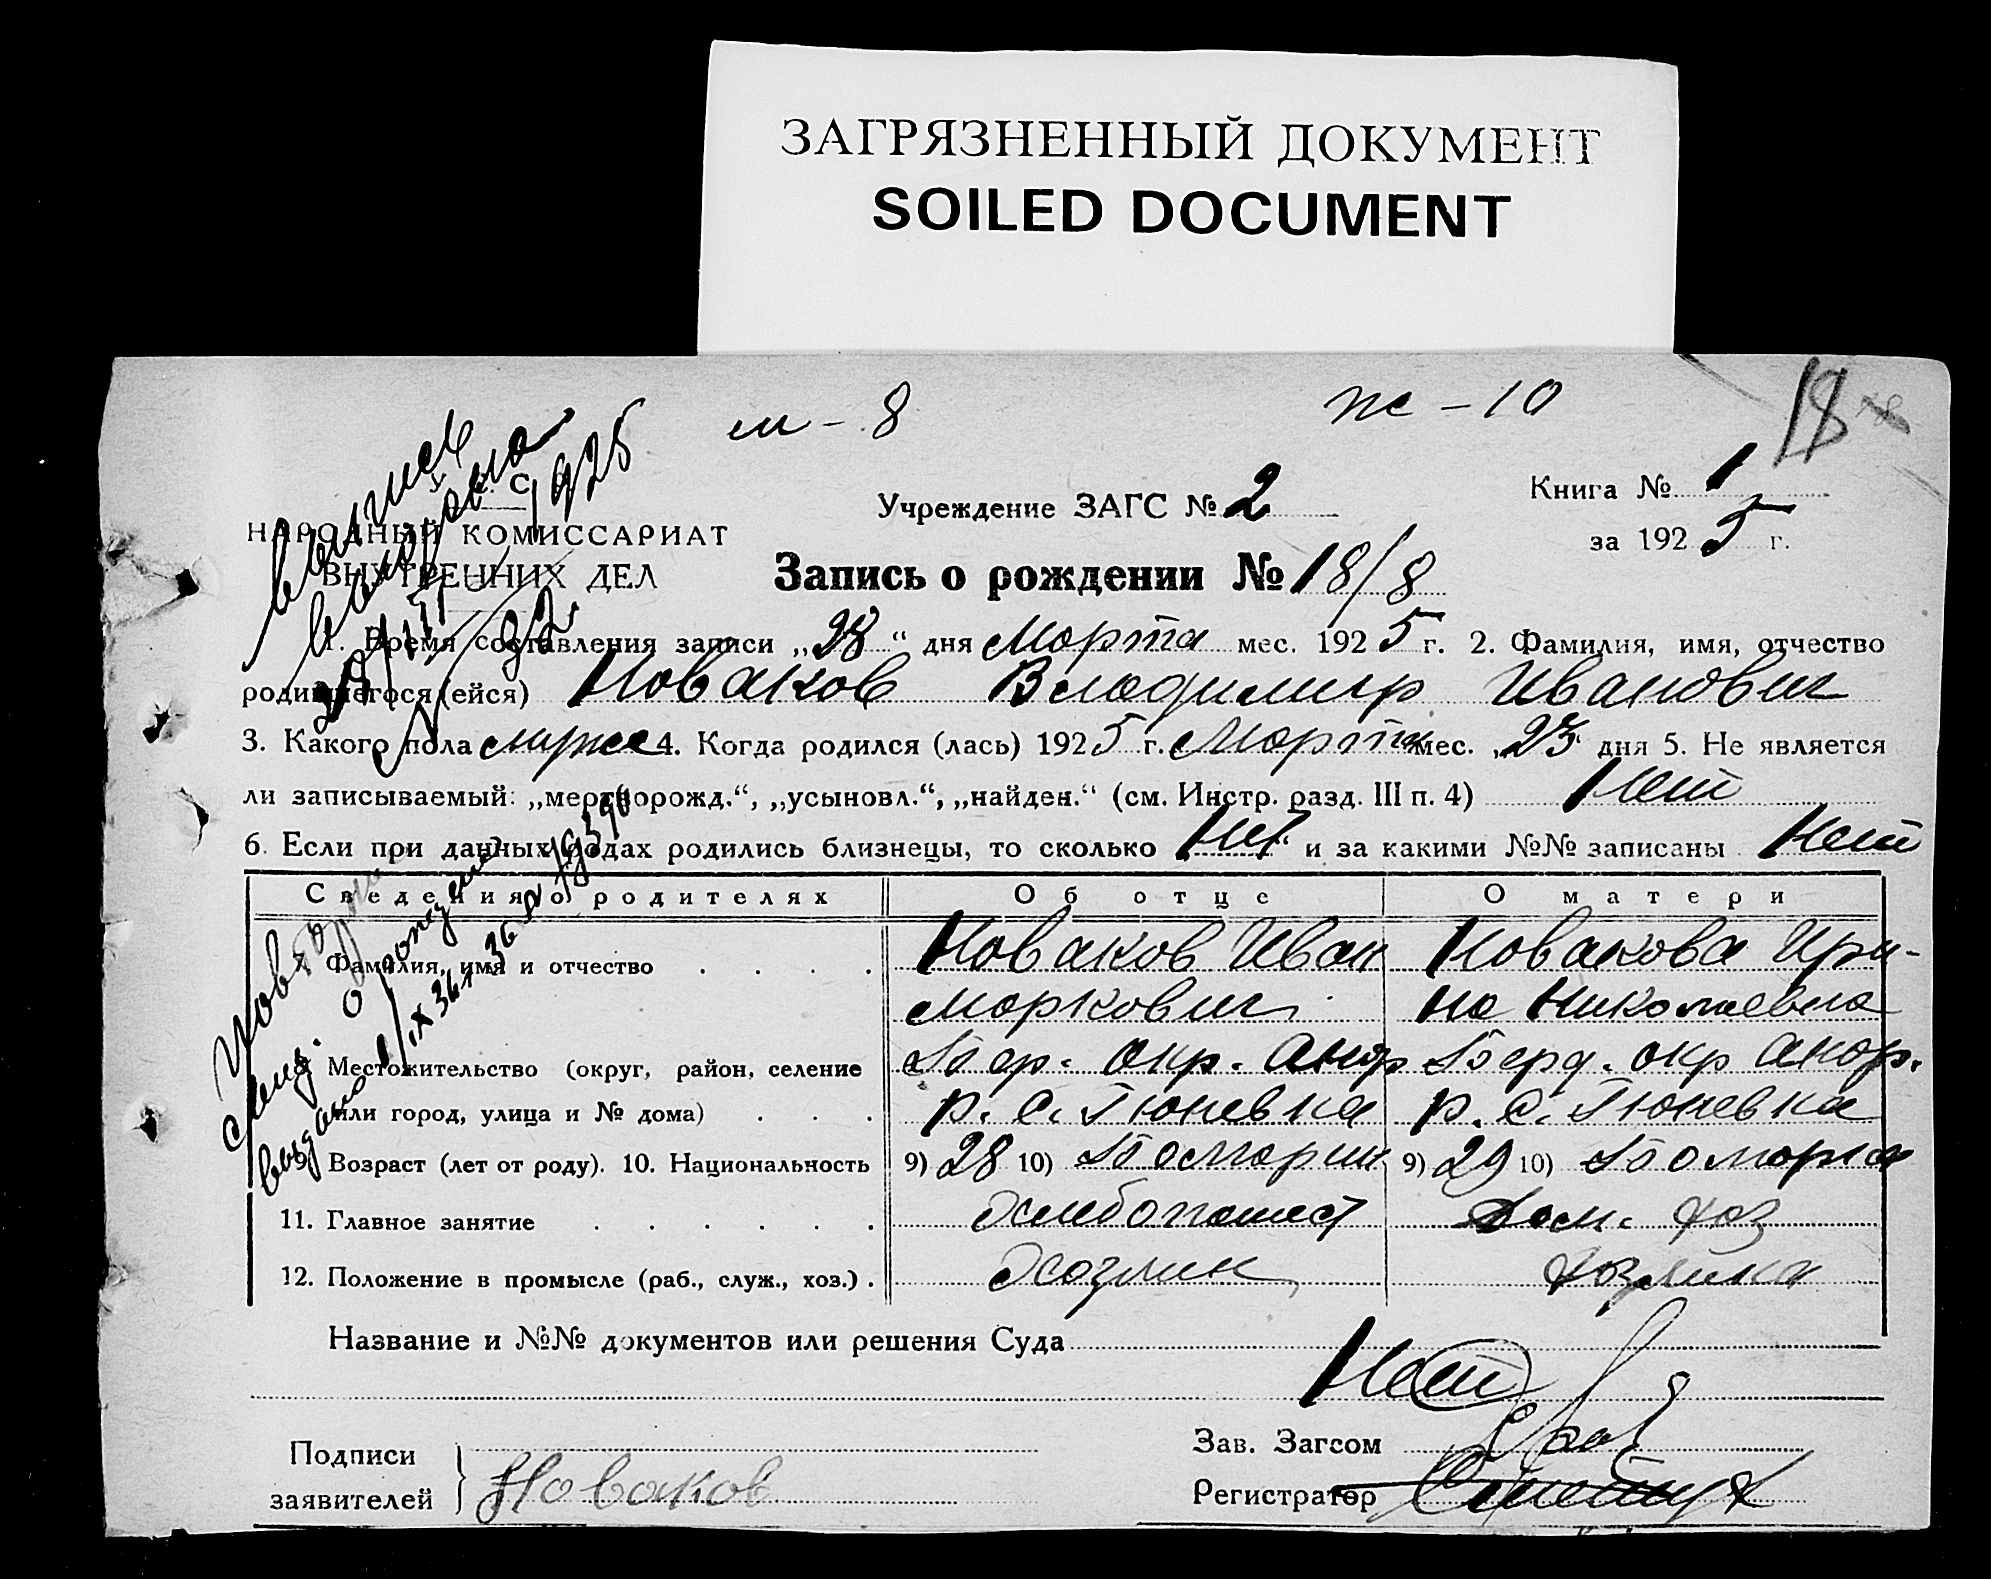 ЗАГРЯЗНЕННЫЙ ДОКУМЕНТ
SOILED DOCUMENT
м - 8
ж - 10
18
Книга № 1
за 1925 г.
Учреждение ЗАГС № 2
НАРОДНЫЙ КОМИССАРИАТ
ВНУТРЕННИХ ДЕЛ
Запись о рождении № 18/8
1. Время составления записи „28“ дня Марта мес. 1925 г. 2. Фамилия, имя, отчество
родившегося (ейся) Новаков Владимир Иванович
3. Какого пола мужс 4. Когда родился (лась) 1925 г. Марта мес. „23“ дня 5. Не является
ли записываемый: „мертворожд.“, „усыновл.“, „найден.“ (см. Инстр. разд. III п. 4) Нет
6. Если при данных родах родились близнецы, то сколько Нет и за какими №№ записаны Нет
Сведения о родителях Об отце О матери
Фамилия, имя и отчество Новаков Иван Новакова Ири-
Маркович на Николаевна
Местожительство (округ, район, селение Бер. окр. Берд. окр
или город, улица и № дома) р. с. Гюневка р. с. Гюневка
9. Возраст (лет от роду). 10. Национальность 9) 28 10) 9) 29 10)
11. Главное занятие Хлебопашест Дом. хоз
12. Положение в промысле (раб., служ., хоз.) Хозяин хозяйка
Название и №№ документов или решения Суда
Нет
Подписи
заявителей Новаков
Зав. Загсом
Регистратор
выпись
1925
Повторн
о рождении
выдано